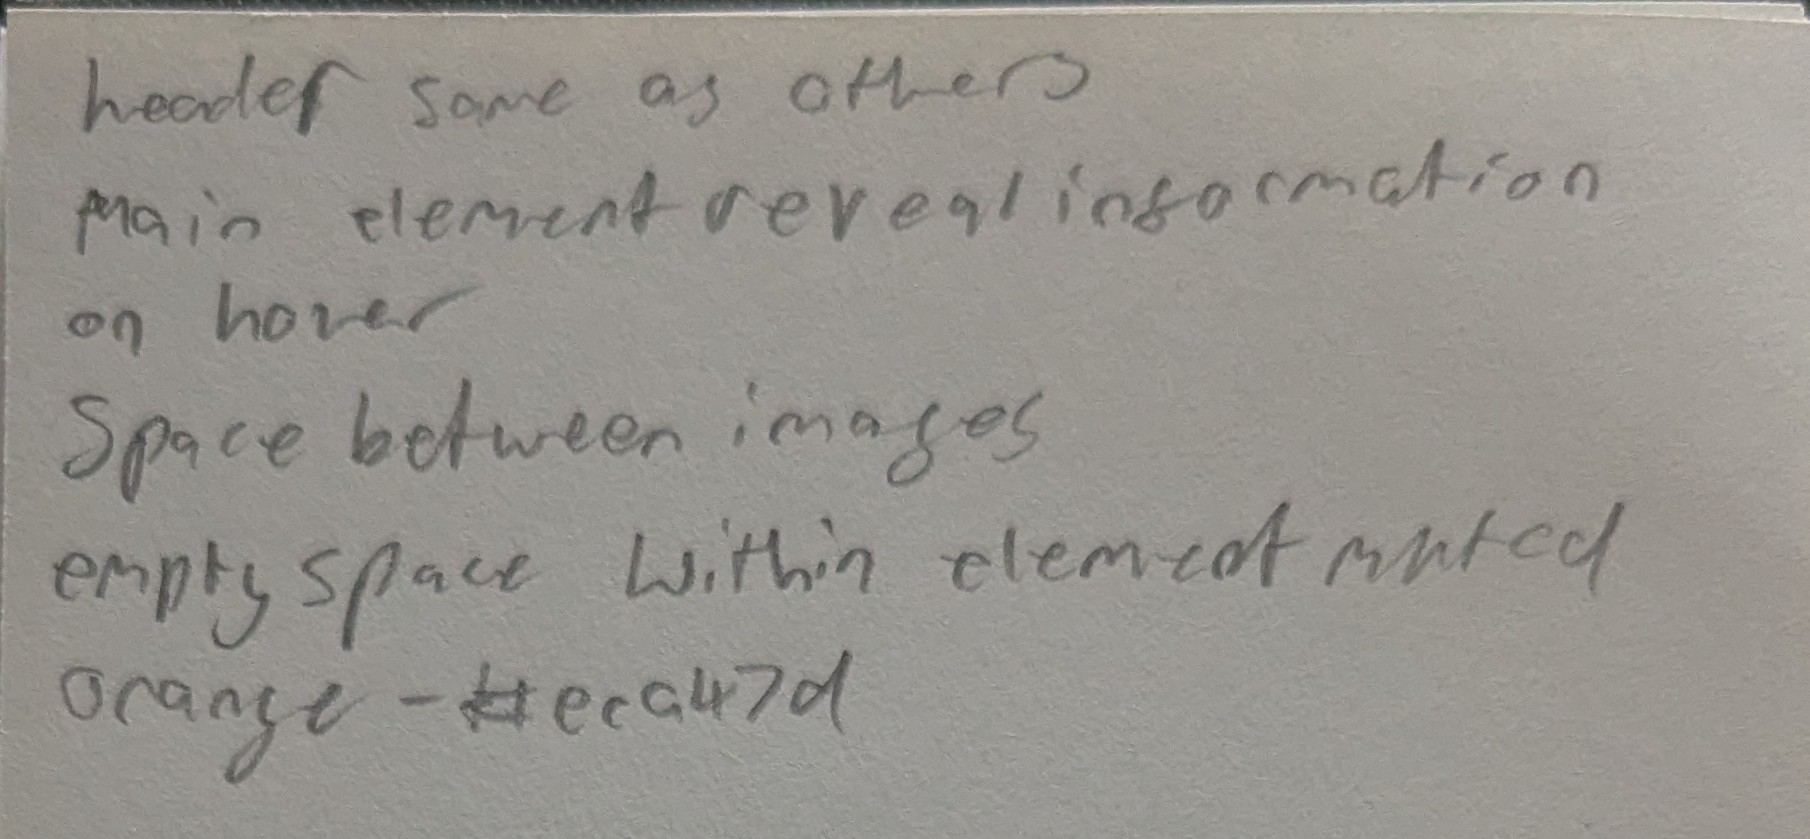 header same as others
main element reveal information
on hover
Space between images
empty space within element muted
orange - #eca47d